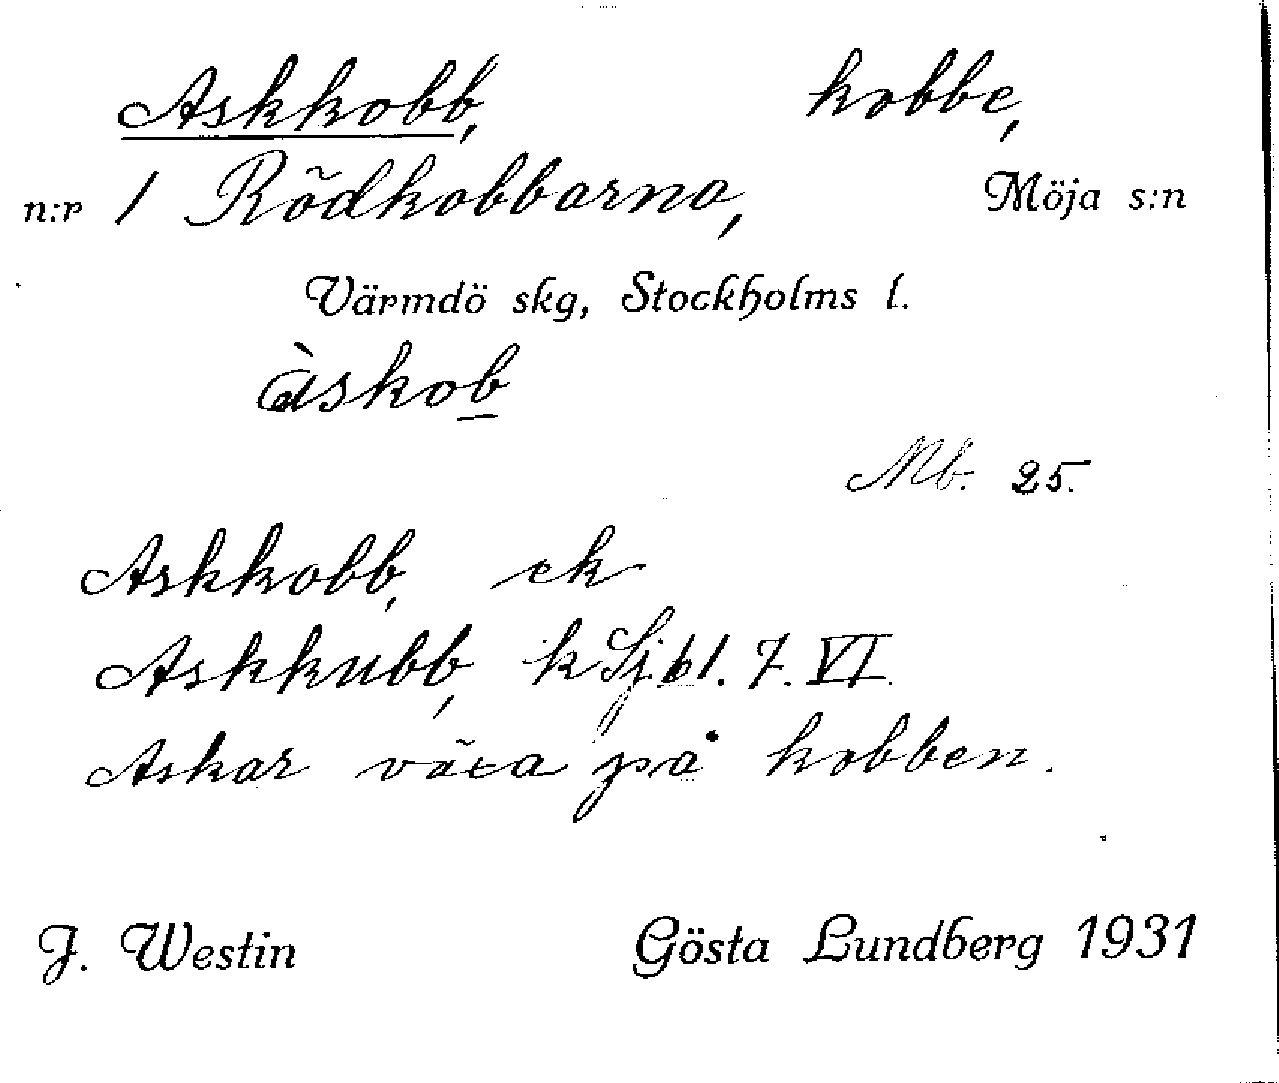 Askkobb, kobbe,
n:r 1 Rödkobbarna, Möja s:n
Värmdö skg, Stockholms l.
àskob
Mb. 25.
Askkobb, ek
Askkubb, k Sj.bl. 7. VI.
Askar växa på kobben.
J. Westin Gösta Lundberg 1931